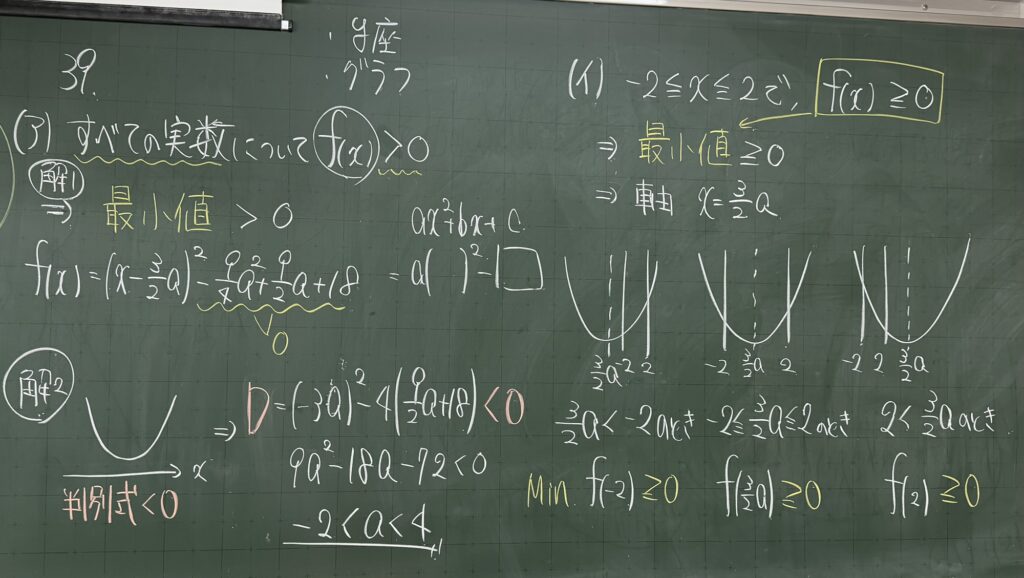 39.
・y座
・グラフ
(ア) すべての実数について f(x) > 0
解1
⇒ 最小値 > 0
ax²+bx+c
f(x) = (x-3/2a)² - 9/4a² + 9/2a + 18 = a( )² - □
∨
0
解2
x
判別式<0
⇒ D = (-3a)² - 4(9/2a+18) < 0
9a² - 18a - 72 < 0
-2 < a < 4
(イ) -2 ≦ x ≦ 2 で, f(x) ≧ 0
⇒ 最小値 ≧ 0
⇒ 軸 x = 3/2a
3/2a -2 2
-2 3/2a 2
-2 2 3/2a
3/2a < -2 のとき -2 ≦ 3/2a ≦ 2 のとき 2 < 3/2a のとき
Min. f(-2) ≧ 0 f(3/2a) ≧ 0 f(2) ≧ 0